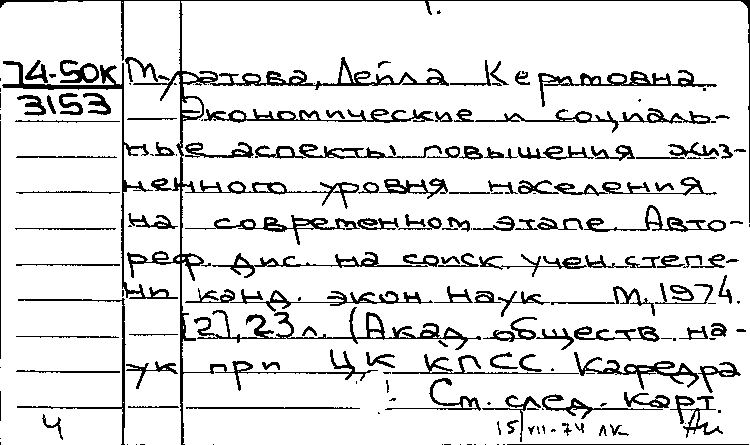 1.
74-50к Муратова, Лейла Керимовна.
3153 Экономические и социаль-
ные аспекты повышения жиз-
ненного уровня населения
на современном этапе. Авто-
реф. дис. на соиск. учен. степе-
ни канд. экон. наук. М., 1974.
[2], 23 л. (Акад. обществ. на-
ук при ЦК КПСС. Кафедра
См. след. карт.
4 15/VII-74 ЛК